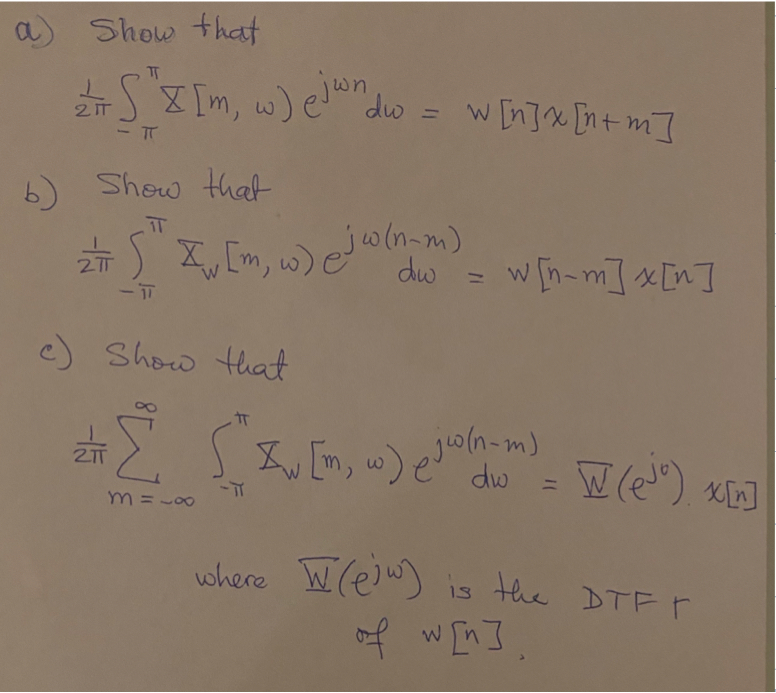 a) Show that
1/2π ∫_{-π}^{π} X[m, ω) e^{jωn} dω = w[n]x[n+m]
b) Show that
1/2π ∫_{-π}^{π} X_w[m, ω) e^{jω(n-m)} dω = w[n-m] x[n]
c) Show that
1/2π ∑_{m=-∞}^{∞} ∫_{-π}^{π} X_w[m, ω) e^{jω(n-m)} dω = W(e^{j0}). x[n]
where W(e^{jω}) is the DTFT
of w[n].